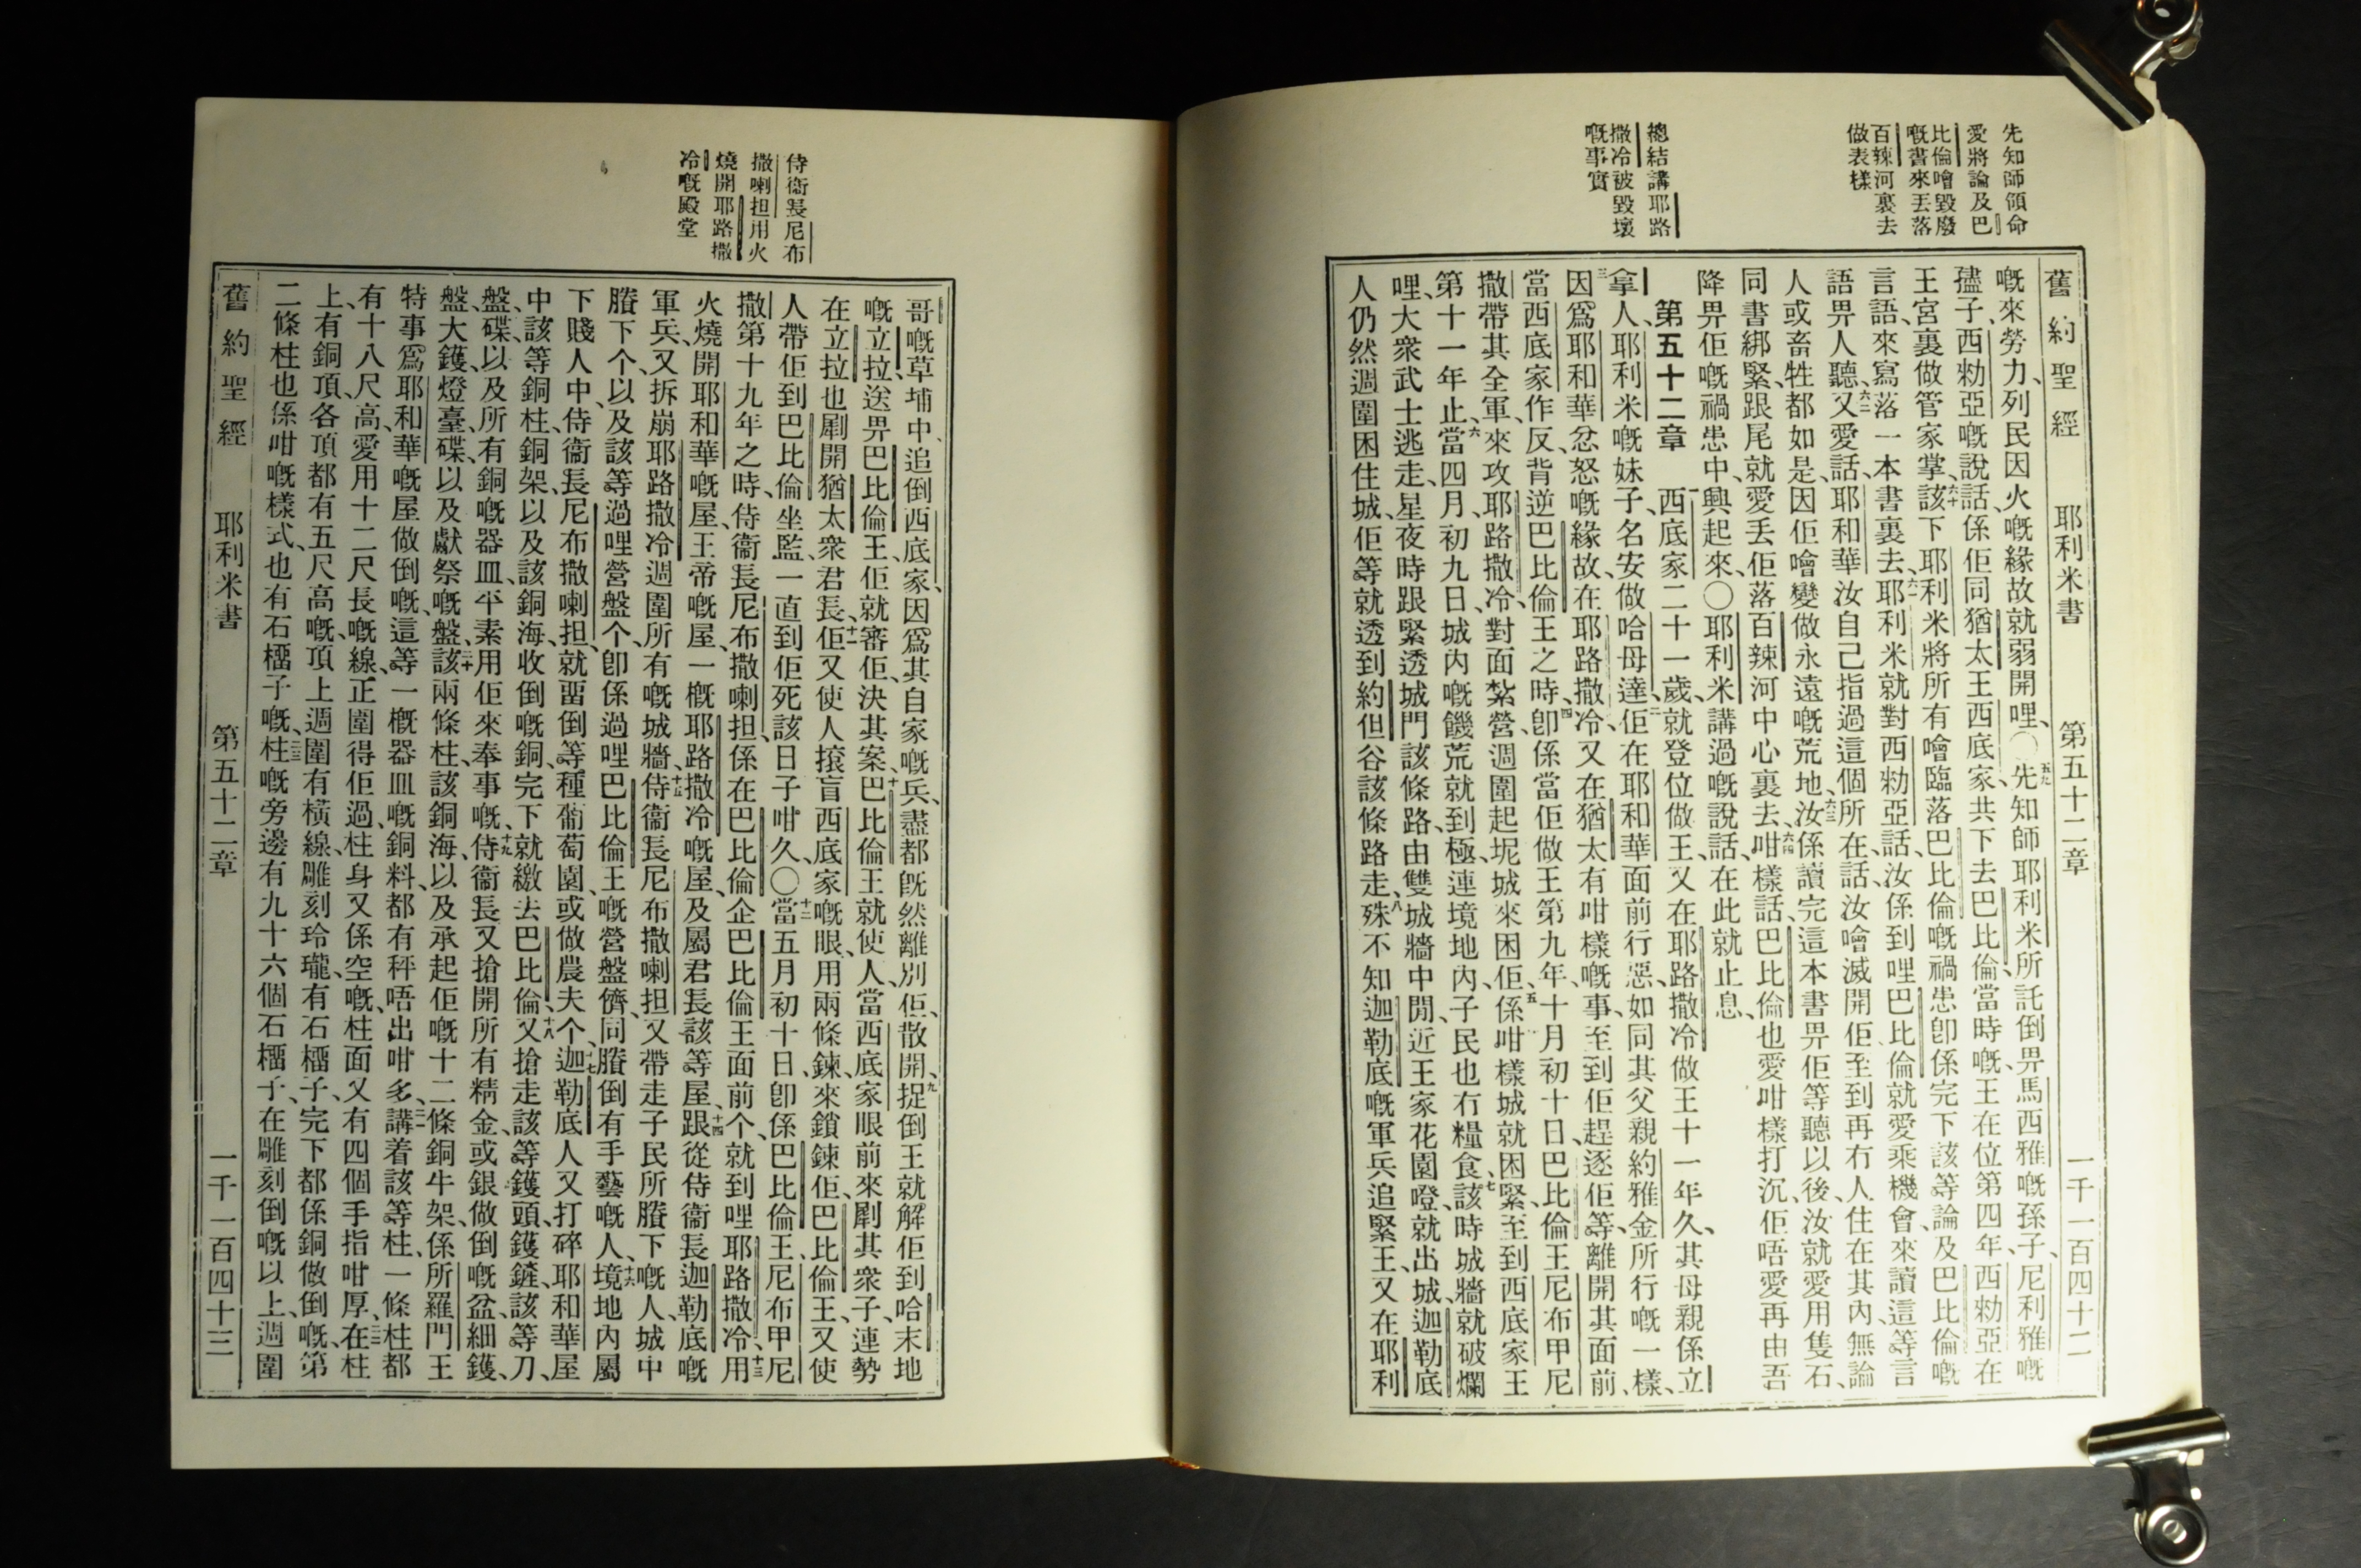 先知師領命
愛將論及巴
比倫噲毀廢
嘅書來丟落
百辣河裏去
做表樣
總結講耶路
撒冷被毀壞
嘅事實
舊約聖經 耶利米書 第五十二章 一千一百四十二
嘅來勞力、列民因火嘅緣故就弱開哩、〇五九先知師耶利米所託倒畀馬西雅嘅孫子、尼利雅嘅
孻子、西勑亞嘅說話、係佢同猶太王西底家、共下去巴比倫、當時嘅王在位第四年、西勑亞在
王宮裏做管家掌、六十該下耶利米將所有噲臨落巴比倫嘅禍患卽係完下該等論及巴比倫嘅
言語、來寫落一本書裏去、六一耶利米就對西勑亞話、汝係到哩巴比倫就愛乘機會、來讀這等言
語畀人聽、六二又愛話、耶和華汝自己指過這個所在、話汝噲滅開佢至到再冇人住在其內、無論
人或畜牲都如是、因佢噲變做永遠嘅荒地、六三汝係讀完這本書畀佢等聽以後、汝就愛用隻石、
同書綁緊、跟尾就愛丟佢落百辣河中心裏去、六四咁樣話、巴比倫也愛咁樣打沉、佢唔愛再由吾
降畀佢嘅禍患中興起來、〇耶利米講過嘅說話、在此就止息、
第五十二章 一西底家二十一歲、就登位做王、又在耶路撒冷做王十一年久、其母親係立
拿人、耶利米嘅妹子、名安做哈母達、二佢在耶和華面前行惡、如同其父親約雅金所行嘅一樣、
三因爲耶和華忿怒嘅緣故、在耶路撒冷、又在猶太有咁樣嘅事、至到佢趕逐佢等、離開其面前、
當西底家作反、背逆巴比倫王之時、四卽係當佢做王第九年、十月初十日、巴比倫王尼布甲尼
撒、帶其全軍、來攻耶路撒冷、對面紮營、週圍起坭城來困佢、五係咁樣城就困緊、至到西底家王
第十一年止、六當四月初九日、城內嘅饑荒就到極、連境地內子民也冇糧食、七該時城牆就破爛
哩、大衆武士逃走、星夜時跟緊透城門該條路、由雙城牆中間、近王家花園噔、就出城、迦勒底
人仍然週圍困住城、佢等就透到約但谷該條路走、八殊不知迦勒底嘅軍兵追緊王、又在耶利
侍衞長尼布
撒喇担用火
燒開耶路撒
冷嘅殿堂
哥嘅草埔中、追倒西底家、因爲其自家嘅兵、盡都旣然離別佢、散開、九捉倒王就解佢到哈末地
嘅立拉、送畀巴比倫王、佢就審佢、決其案、十巴比倫王就使人、當西底家眼前來㓾其衆子、連勢
在立拉也㓾開猶太衆君長、十一佢又使人㨘盲西底家嘅眼、用兩條鍊、來鎖鍊佢、巴比倫王、又使
人帶佢到巴比倫坐監、一直到佢死該日子咁久、〇十二當五月初十日、卽係巴比倫王、尼布甲尼
撒第十九年之時、侍衞長尼布撒喇担、係在巴比倫企巴比倫王面前个、就到哩耶路撒冷、十三用
火燒開耶和華嘅屋、王帝嘅屋、一概耶路撒冷嘅屋、及屬君長該等屋、十四跟從侍衞長迦勒底嘅
軍兵、又拆崩耶路撒冷週圍所有嘅城牆、十五侍衞長尼布撒喇担、又帶走子民所賸下嘅人、城中
賸下个、以及該等過哩營盤个、卽係過哩巴比倫王嘅營盤儕、同賸倒有手藝嘅人、十六境地內屬
下賤人中、侍衞長尼布撒喇担、就畱倒等種葡萄園、或做農夫个、十七迦勒底人又打碎耶和華屋
中該等銅柱、銅架、以及該銅海、收倒嘅銅、完下就繳去巴比倫、十八又搶走該等鑊頭、鑊鏟、該等刀、
盤、碟、以及所有銅嘅器皿、平素用佢來奉事嘅、十九侍衞長又搶開所有精金、或銀做倒嘅盆、細鑊、
盤、大鑊、燈臺、碟、以及獻祭嘅盤、二十該兩條柱、該銅海、以及承起佢嘅十二條銅牛架、係所羅門王
特事爲耶和華嘅屋做倒嘅、這等一概器皿嘅銅料、都有秤唔出咁多、二一講着該等柱、一條柱都
有十八尺高、愛用十二尺長嘅線、正圍得佢過、柱身又係空嘅、柱面又有四個手指咁厚、二二在柱
上、有銅頂、各頂都有五尺高嘅、頂上週圍有橫線、雕刻玲瓏、有石榴子、完下都係銅做倒嘅、第
二條柱也係咁嘅樣式、也有石榴子嘅、二三柱嘅旁邊有九十六個石榴子、在雕刻倒嘅以上、週圍
舊約聖經 耶利米書 第五十二章 一千一百四十三